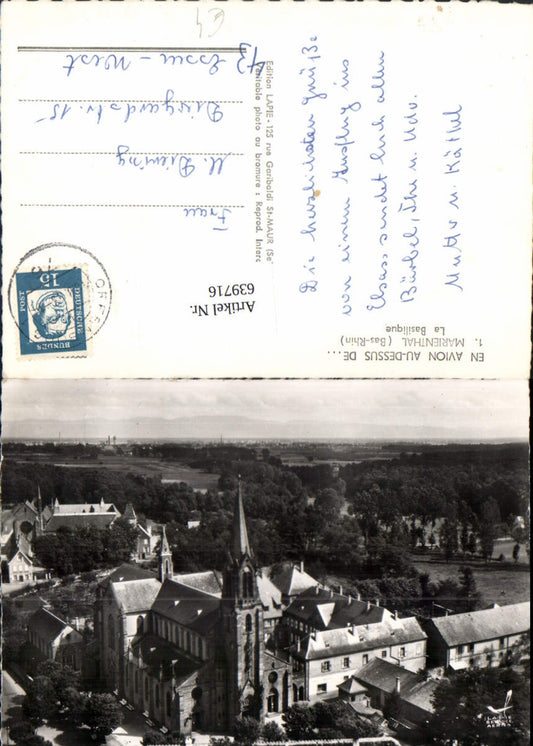 EN AVION AU-DESSUS DE...
1. MARIENTHAL (Bas-Rhin)
La Basilique
Die herzlichsten Grüße
von einem Ausflug ins
Elsass sendet Euch allen
Bärbel, Ilse u. Udo.
Mutter u. Käthel
Artikel Nr.
639716
Edition LAPIE - 125 rue Garibaldi St-MAUR (Se
éritable photo au bromure : Reprod. Interc
Frau
U. Diening
43 Essen-West
DEUTSCHE
BUNDES
POST
15